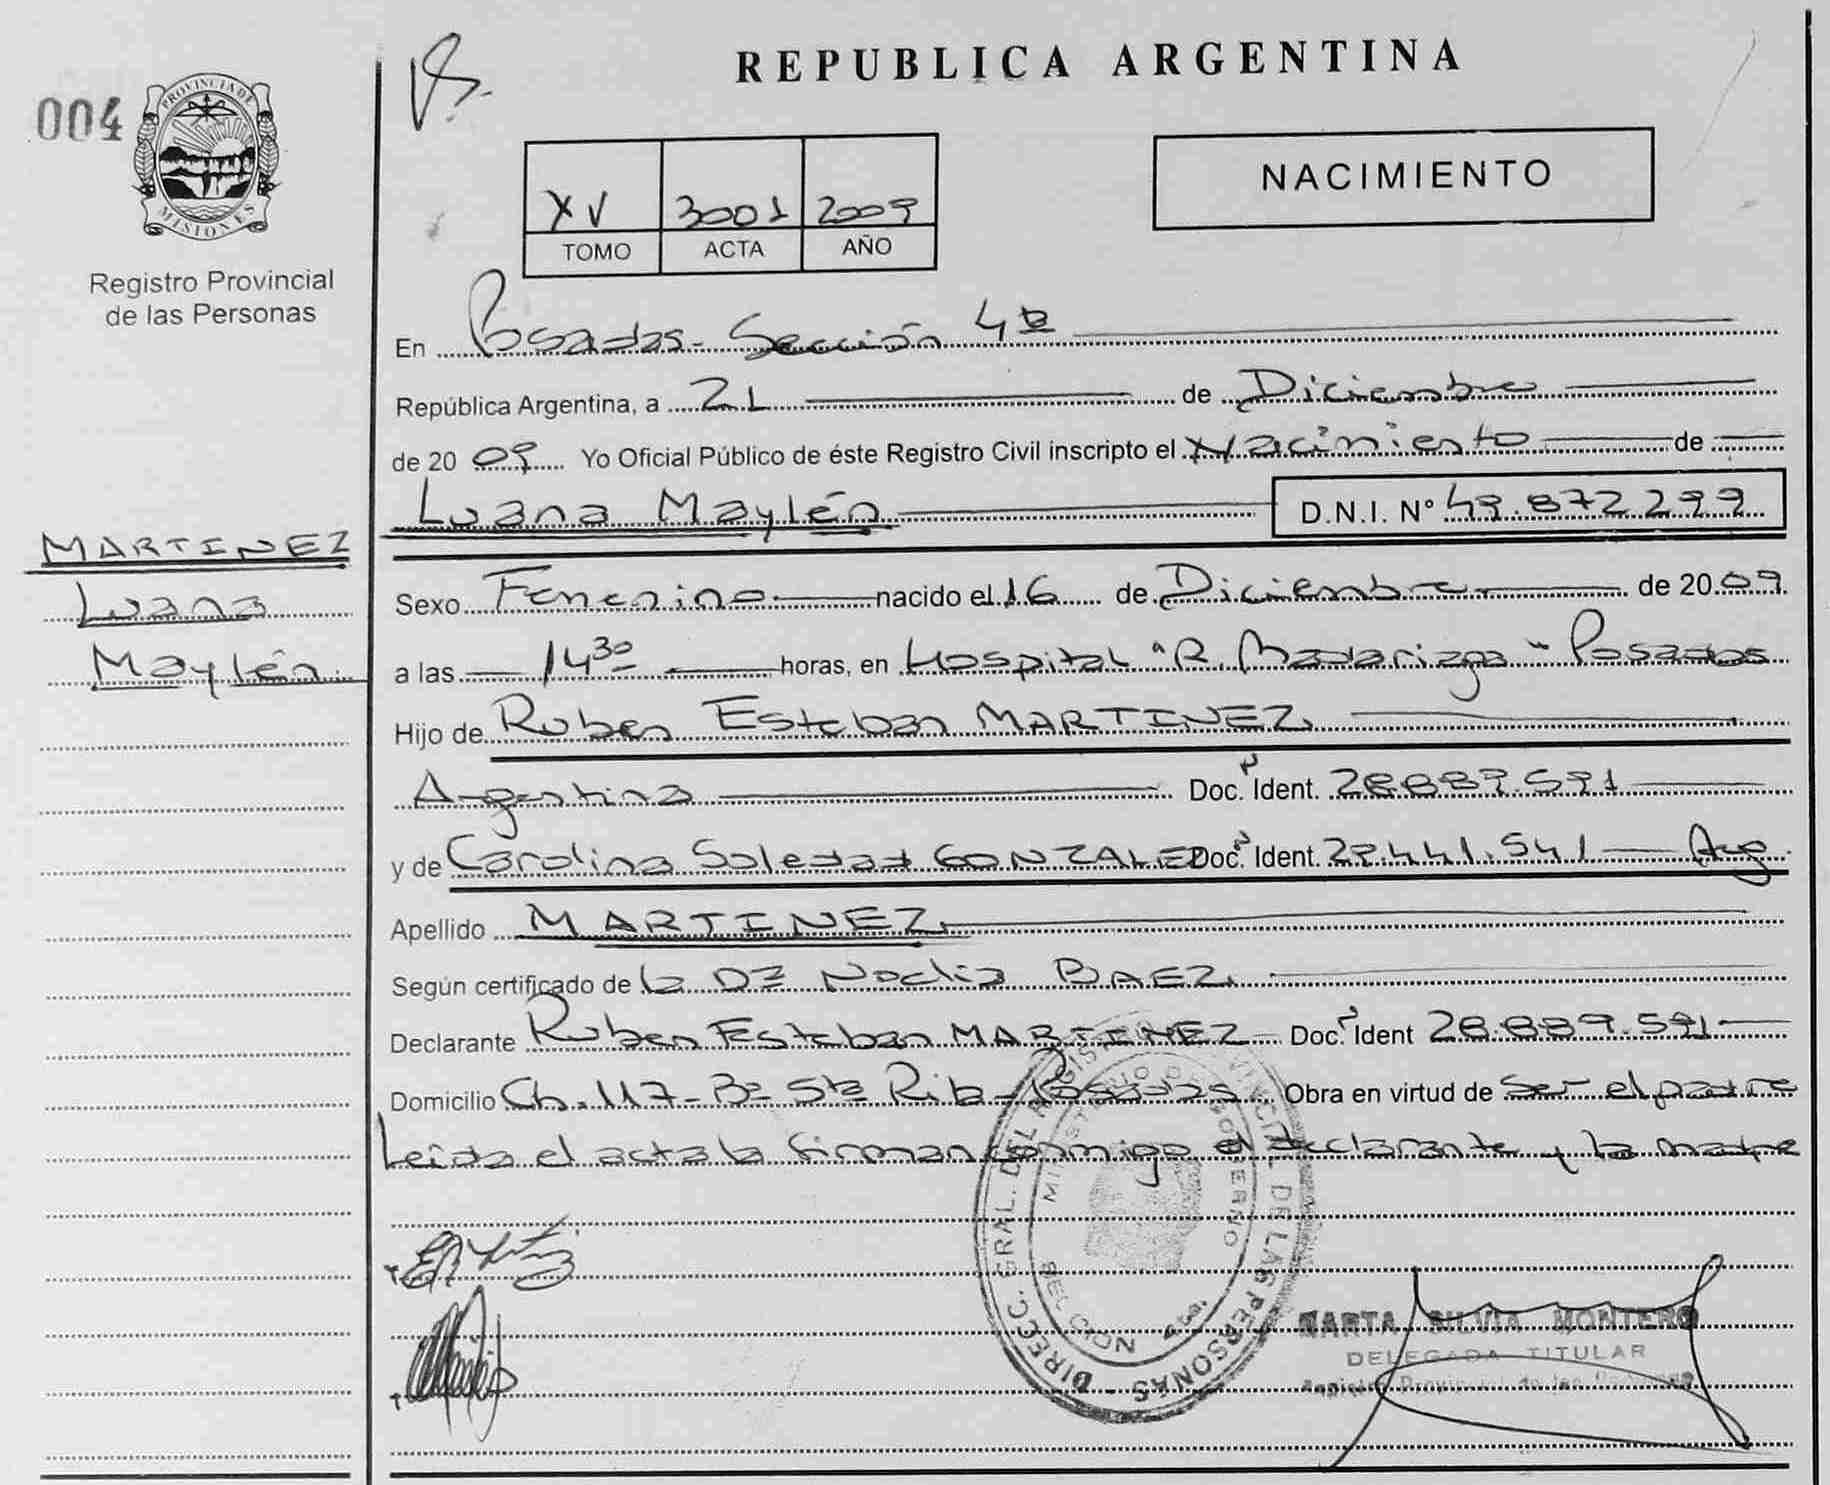 REPUBLICA ARGENTINA
004
PROVINCIA DE
MISIONES
Registro Provincial
de las Personas
NACIMIENTO
XV 3001 2009
TOMO ACTA AÑO
En Posadas - Sección 4ta
República Argentina, a 21 de Diciembre
de 20 09 Yo Oficial Público de éste Registro Civil inscripto el Nacimiento de
Luana Maylén D.N.I. Nº 49.872.299
MARTINEZ
Luana
Maylén
Sexo Femenino nacido el 16 de Diciembre de 20 09
a las 14 30 horas, en Hospital "R. Madariaga" Posadas
Hijo de Ruben Esteban MARTINEZ
Argentina Doc. Ident. 28.889.591
y de Carolina Soledad GONZALEZ Doc. Ident. 29.441.541 Arg.
Apellido MARTINEZ
Según certificado de la Dra Noelia BAEZ
Declarante Ruben Esteban MARTINEZ Doc. Ident 28.889.591
Domicilio Ch. 117 - Bº Sta Rita - Posadas Obra en virtud de Ser el padre
Leida el acta la firman conmigo el declarante y la madre
DIRECC. GRAL. DEL REGISTRO PROVINCIAL DE LAS PERSONAS
MINISTERIO DE GOBIERNO
MARTA SILVIA MONTERO
DELEGADA TITULAR
Registro Provincial de las Personas